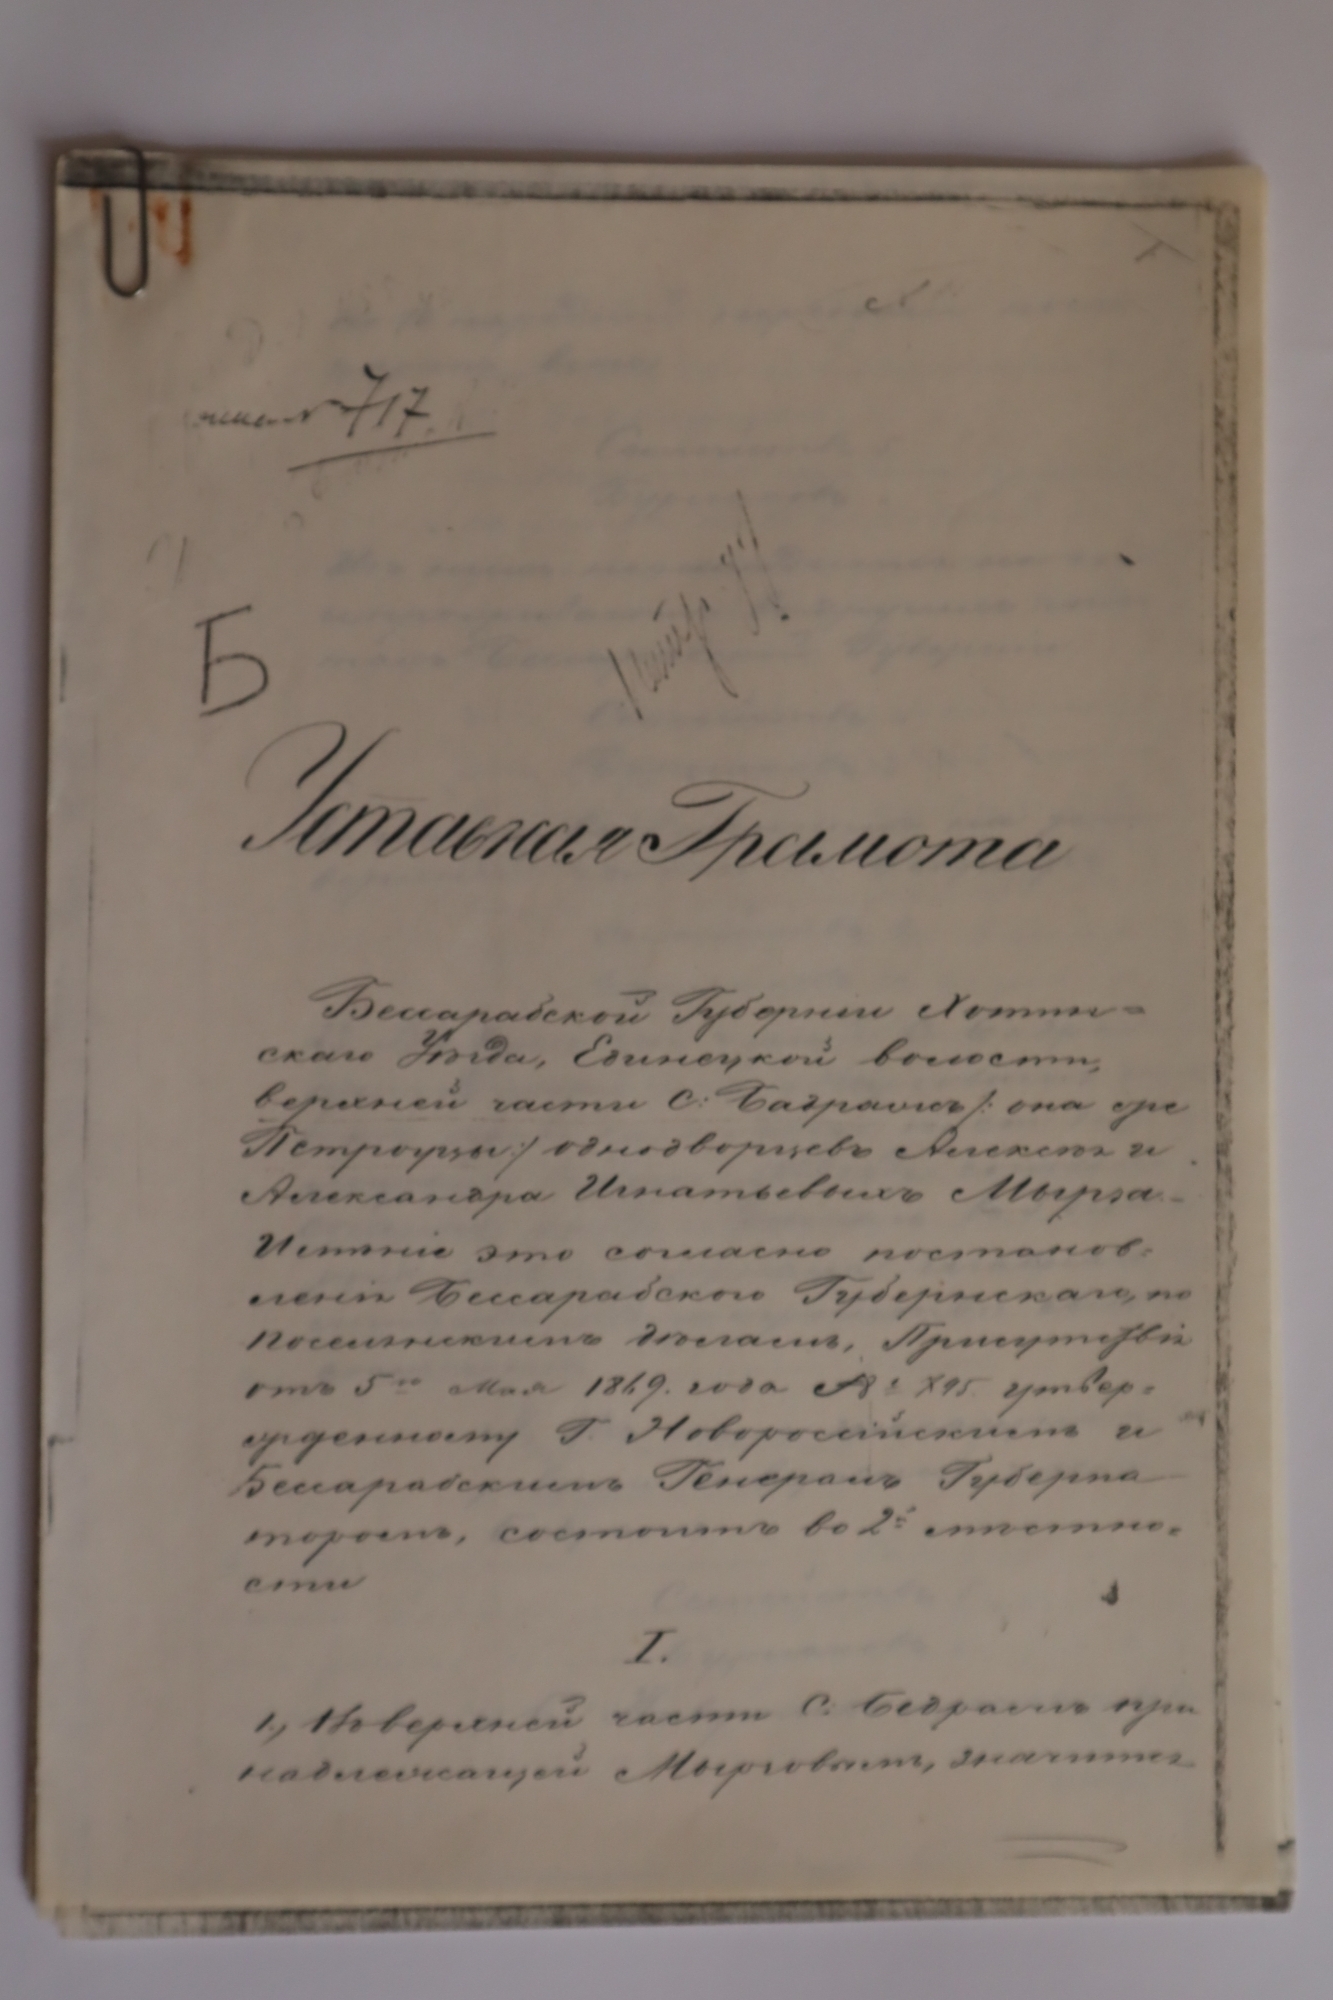 717.
Б
Уставная Грамота
Бессарабской Губерніи Хотин=
скаго Уѣзда, Единецкой волости,
верхней части С: Бадражъ /: она же
Петроуцы:/ однодворцевъ Алексѣя и
Александра Игнатьевыхъ Мырза.
Имѣніе это согласно постанов=
ленія Бессарабского Губернскаго, по
поселянскимъ дѣламъ, Присутствія
отъ 5го Мая 1869. года № 895. утвер=
жденному Г. Новороссійскимъ и
Бессарабскимъ Генералъ Губерна
торомъ, состоитъ во 2й мѣстно=
сти
I.
1., Въ верхней части С: Бедражъ при
надлежащей Мырзовымъ, значится